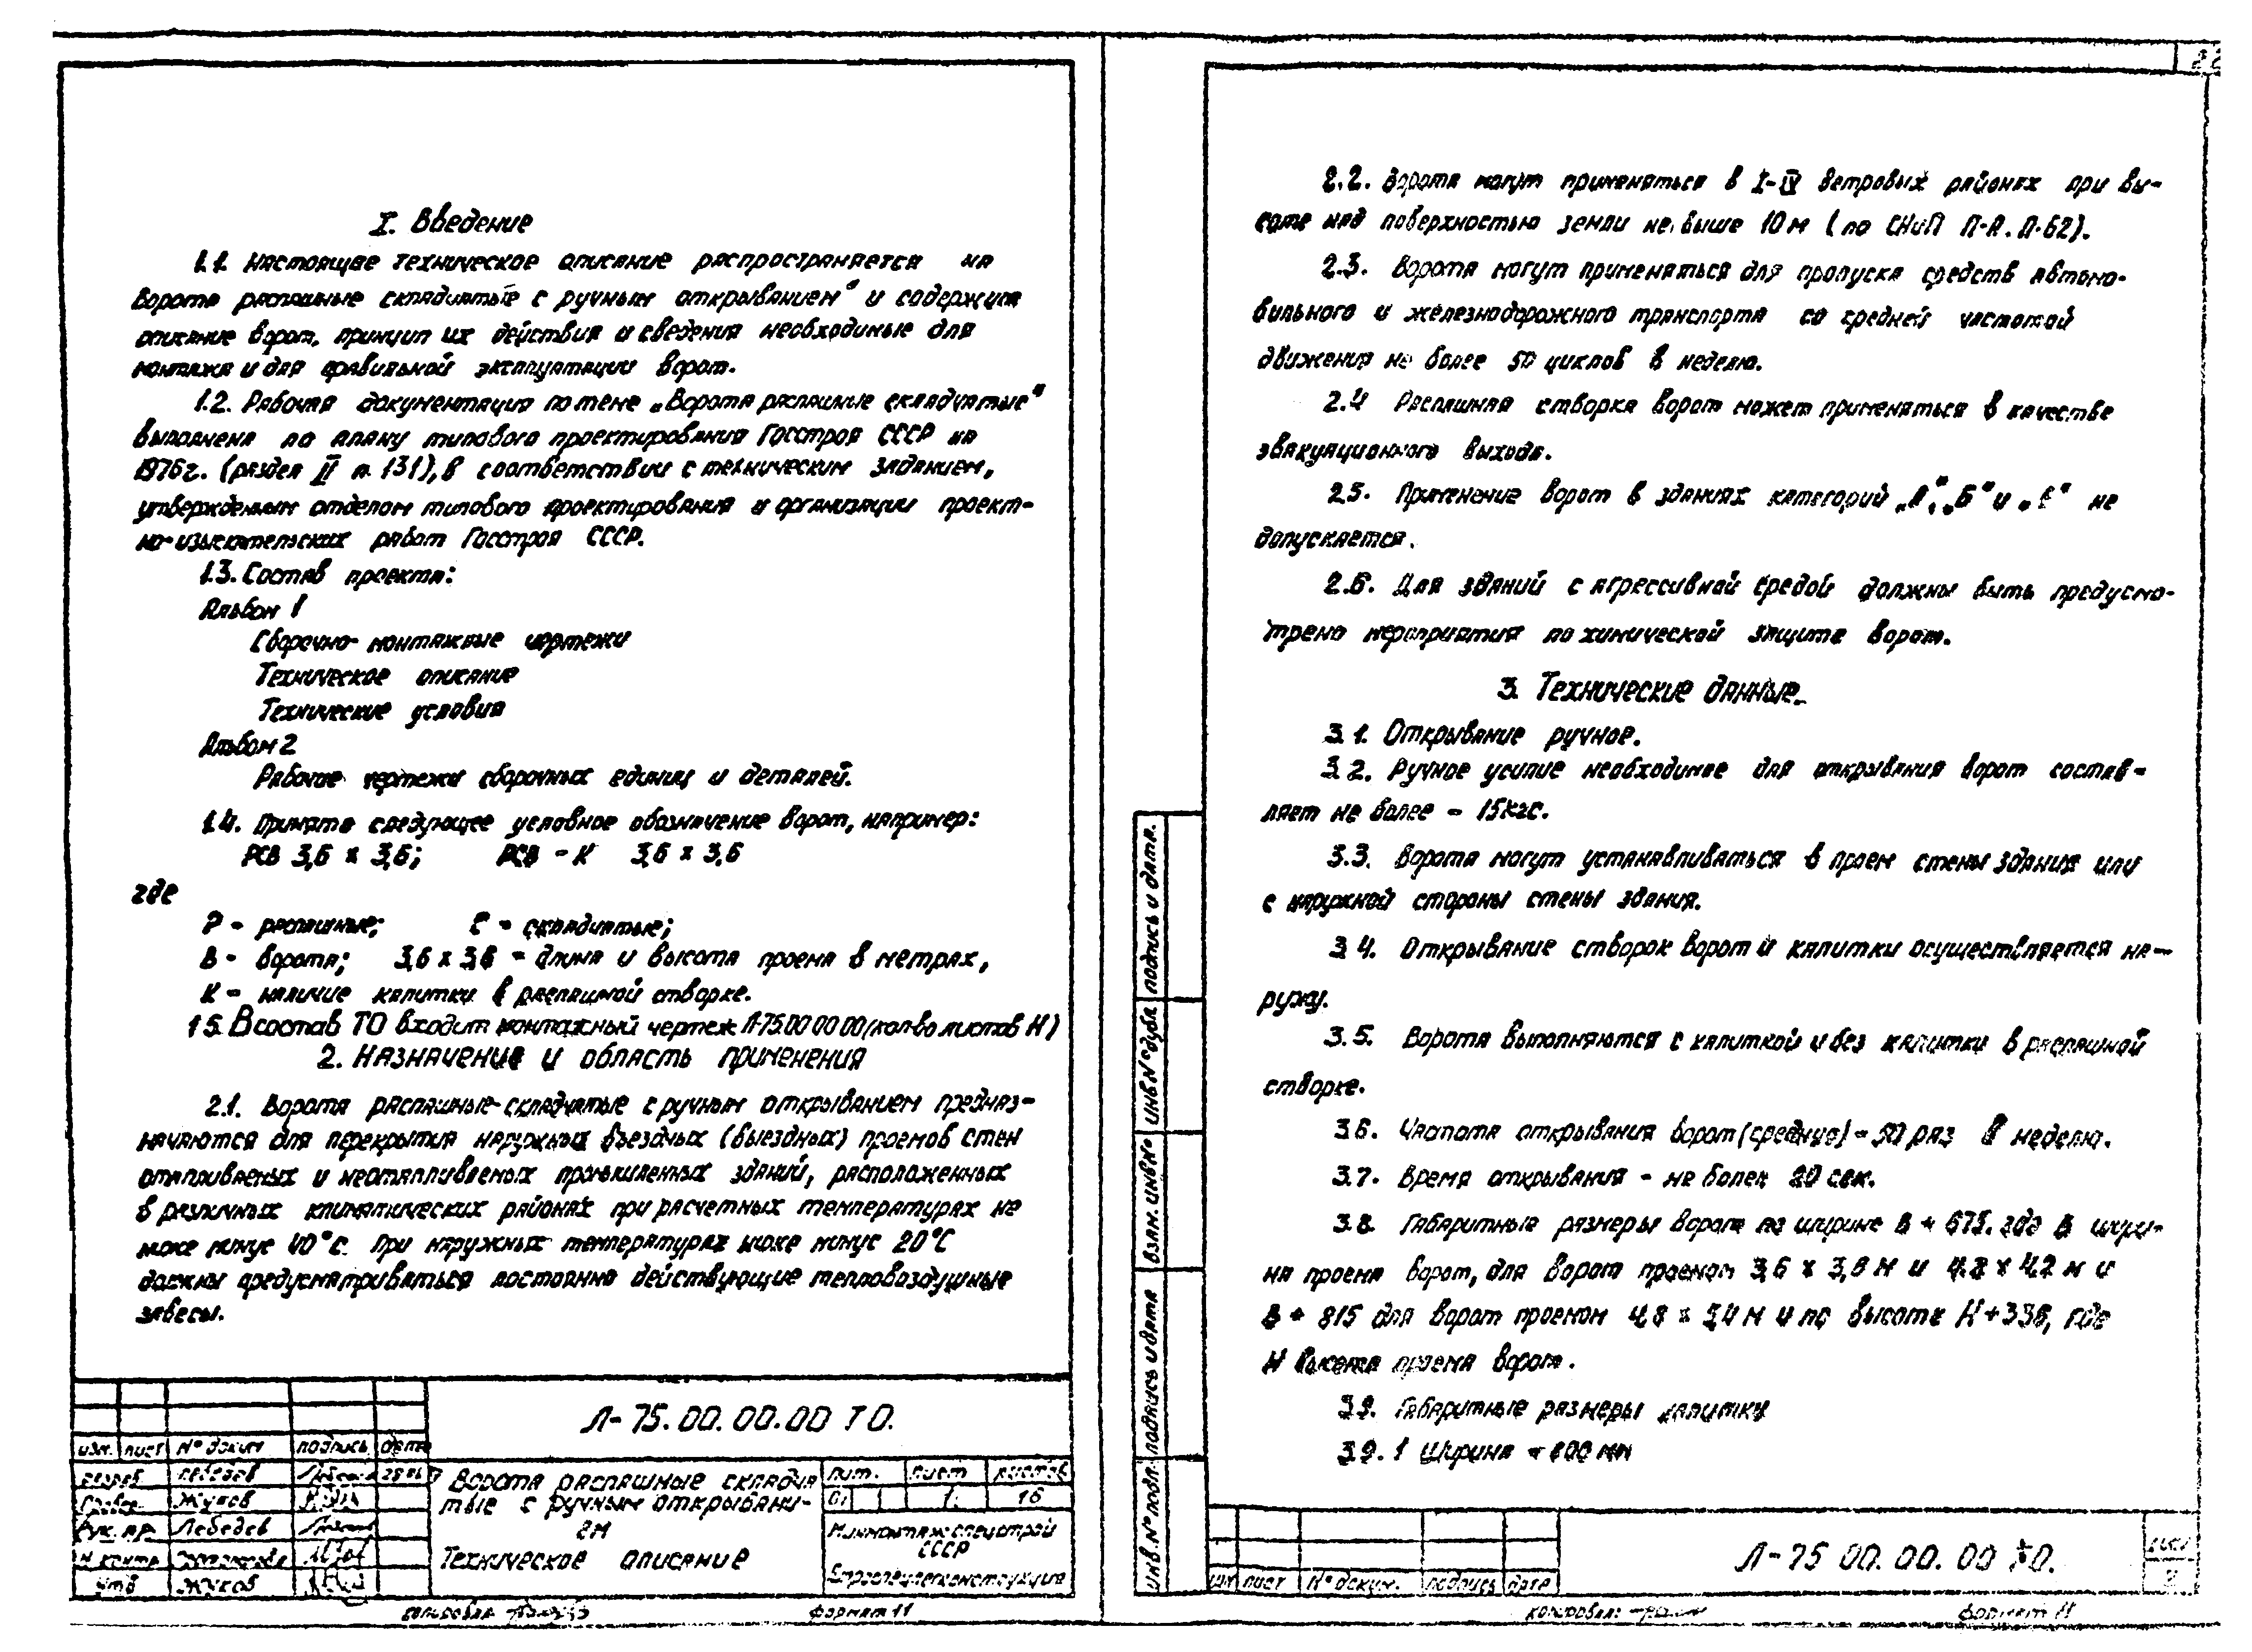 I. Введение
1.1. Настоящее техническое описание распространяется на
ворота распашные складчатые с ручным открыванием" и содержит
описание ворот, принцип их действия и сведения необходимые для
монтажа и для правильной эксплуатации ворот.
1.2. Рабочая документация по теме „Ворота распашные складчатые"
выполнена по плану типового проектирования Госстроя СССР на
1976г. (раздел II п. 131), в соответствии с техническим заданием,
утвержденным отделом типового проектирования и организации проект-
но-изыскательских работ Госстроя СССР.
1.3. Состав проекта:
Альбом 1
Сборочно-монтажные чертежи
Техническое описание
Технические условия
Альбом 2
Рабочие чертежи сборочных единиц и деталей.
1.4. Принято следующее условное обозначение ворот, например:
РСВ 3,6 x 3,6; РСВ - К 3,6 x 3,6
где
Р - распашные; С - складчатые;
В - ворота; 3,6 x 3,6 - длина и высота проема в метрах,
К - наличие калитки в распашной створке.
1.5. В состав ТО входит монтажный чертеж Л-75.00 00 00 (кол-во листов 4)
2. Назначение и область применения
2.1. Ворота распашные складчатые с ручным открыванием предназ-
начаются для перекрытия наружных въездных (выездных) проемов стен
отапливаемых и неотапливаемых промышленных зданий, расположенных
в различных климатических районах при расчетных температурах не
ниже минус 40°С. При наружных температурах ниже минус 20°С
должны предусматриваться постоянно действующие тепловоздушные
завесы.
Л-75.00.00.00 ТО.
изм. лист № докум подпись дата
Разраб. Лебедев
Провер. Жуков
Рук. пр. Лебедев
Н. контр
Утв Жуков
Ворота распашные складча
тые с ручным открывани-
ем
Техническое описание
Лит. Лист Листов
1. 16
Минмонтажспецстрой
СССР
Формат 11
2.2. Ворота могут применяться в I-IV ветровых районах при вы-
соте над поверхностью земли не выше 10м (по СНиП П-А.П-62).
2.3. Ворота могут применяться для пропуска средств автомо-
бильного и железнодорожного транспорта со средней частотой
движения не более 50 циклов в неделю.
2.4 Распашная створка ворот может применяться в качестве
эвакуационного выхода.
2.5. Применение ворот в зданиях категорий „А", „Б" и „Е" не
допускается.
2.6. Для зданий с агрессивной средой должны быть предусмо-
трено мероприятия по химической защите ворот.
3. Технические данные.
3.1. Открывание ручное.
3.2. Ручное усилие необходимое для открывания ворот состав-
ляет не более - 15кгс.
3.3. Ворота могут устанавливаться в проем стены здания или
с наружной стороны стены здания.
3.4. Открывание створок ворот и калитки осуществляется на-
ружу.
3.5. Ворота выполняются с калиткой и без калитки в распашной
створке.
3.6. Частота открывания ворот (средняя) - 50 раз в неделю.
3.7. Время открывания - не более 20 сек.
3.8. Габаритные размеры ворот по ширине В + 675, где В шири-
на проема ворот, для ворот проемом 3,6 x 3,6 м и 4,2 x 4,2 м и
В + 815 для ворот проемом 4,8 x 5,4 м и по высоте Н+336, где
Н высота проема ворот.
3.9. Габаритные размеры калитки
3.9.1 Ширина - 800 мм
Инв.№ подл. подпись и дата Взам. инв № Инв № дубл подпись и дата.
изм лист № докум. подпись дата
Л-75 00.00.00 ТО.
Лист
2
Копировал:
Формат 11